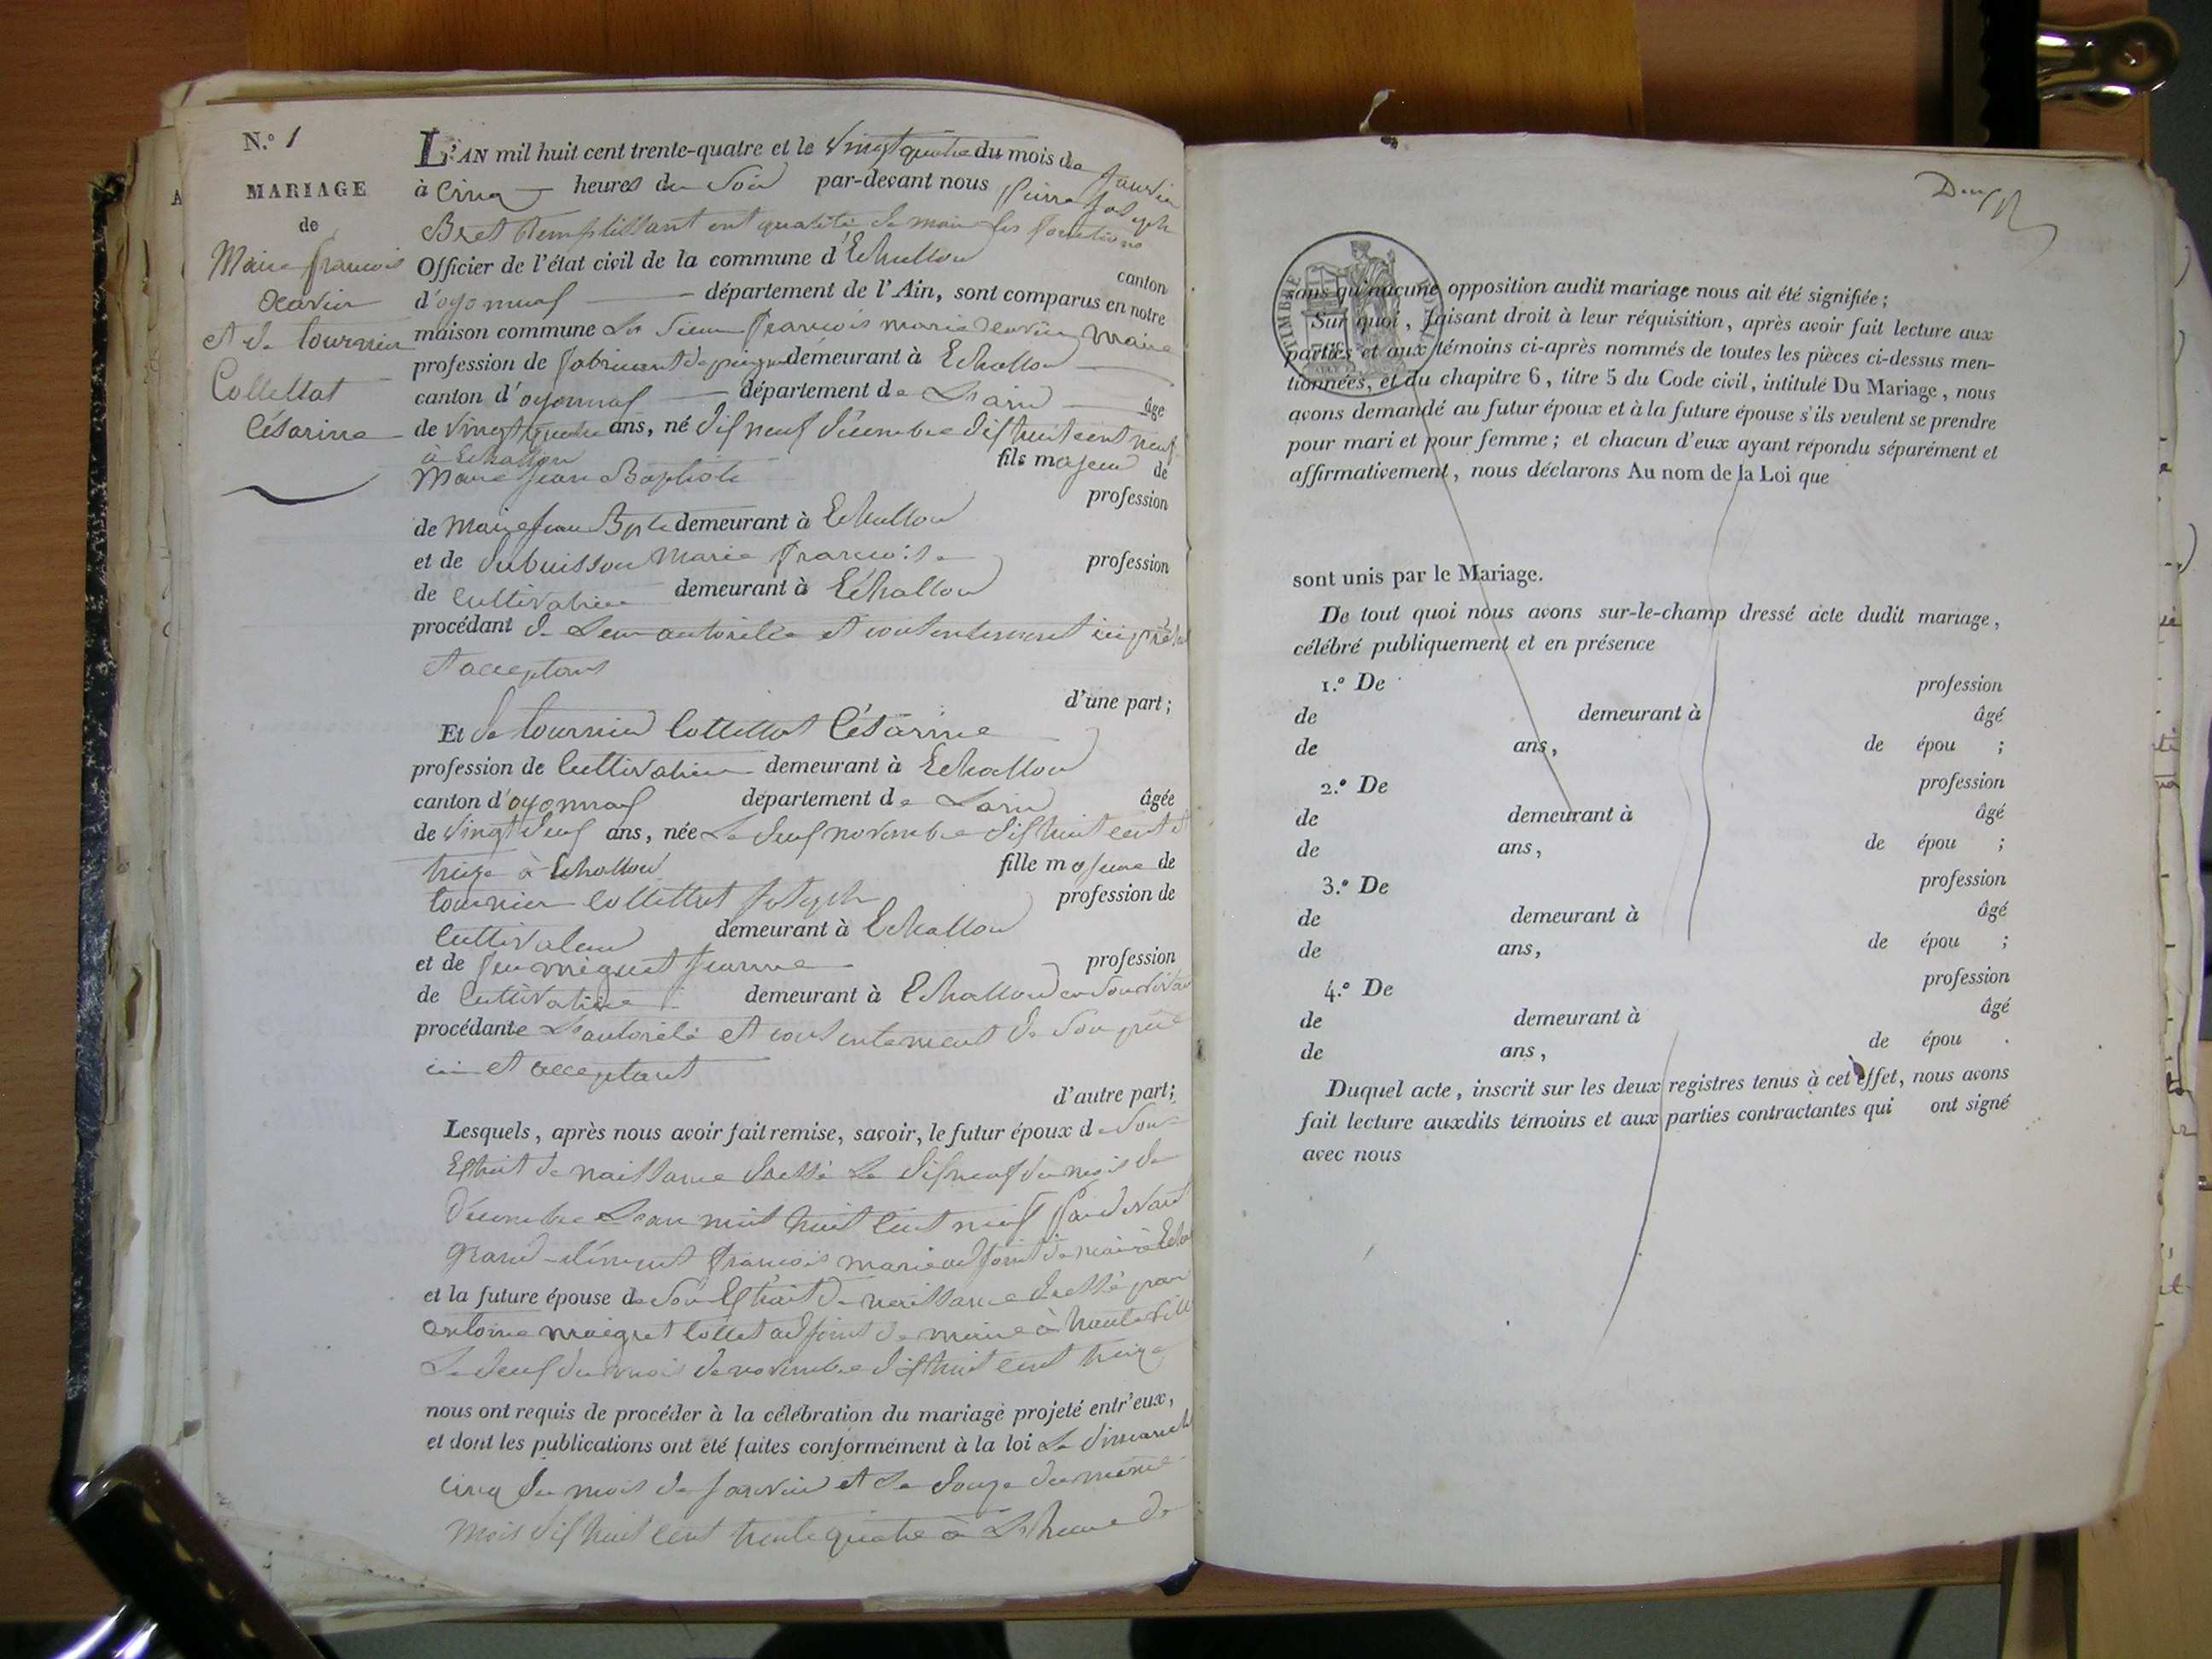 N.º 1
MARIAGE
de
Maire francois
Xavier
et de tournier
Collettat
Césarine
L'AN mil huit cent trente-quatre et le vingt quatre du mois de janvier
à Cinq heures du Soir par-devant nous pierre joseph
Bret Remplissant ent qualité de maire les fonctions
Officier de l'état civil de la commune d'Echallon canton
d'oyonnax département de l'Ain, sont comparus en notre
maison commune Le Sieur francois marie Xavier Maire
profession de fabricant de peigne demeurant à Echallon
canton d'oyonnax département de Lain âgé
de vingt quatre ans, né dix neuf décembre dix huit cent neuf
à Echallon fils majeur de
Maire Jean Baptiste profession
de Maire Jean Bpte demeurant à Echallon
et de dubuisson Marie francoise profession
de cultivatrice demeurant à Echallon
procédant de Leur autorité et consentement ici présent
et acceptans
d'une part;
Et de tournier Collettat Césarine
profession de Cultivatrice demeurant à Echallon
canton d'oyonnax département de Lain âgée
de vingt ans, née Le deux novembre dix huit cent et
treize à Echallon fille majeure de
tournier Collettat Joseph profession de
Cultivateur demeurant à Echallon
et de feu miguet jeanne profession
de cultivatrice demeurant à Echallon en son vivant
procédante L'autorité et consentement de Son père
ici et acceptant
d'autre part;
Lesquels, après nous avoir fait remise, savoir, le futur époux de Son
Extrait de naissance dressé Le dix neuf du mois de
décembre L'an mil huit Cent neuf Par devant
Grand-clément francois marie adjoint de maire à
et la future épouse de Son Extrait de naissance dressé par
antoine maigret Collet adjoint de maire à hauteville
Le deux du mois de novembre dix huit cent treize
nous ont requis de procéder à la célébration du mariage projeté entr'eux,
et dont les publications ont été faites conformément à la loi Le dimanche
cinq du mois de janvier et Le douze du même
mois dix huit cent trente quatre à L'heure de
Deux
TIMBRE
sans qu'aucune opposition audit mariage nous ait été signifiée;
Sur quoi, faisant droit à leur réquisition, après avoir fait lecture aux
parties et aux témoins ci-après nommés de toutes les pièces ci-dessus men-
tionnées, et du chapitre 6, titre 5 du Code civil, intitulé Du Mariage, nous
avons demandé au futur époux et à la future épouse s'ils veulent se prendre
pour mari et pour femme; et chacun d'eux ayant répondu séparément et
affirmativement, nous déclarons Au nom de la Loi que
sont unis par le Mariage.
De tout quoi nous avons sur-le-champ dressé acte dudit mariage,
célébré publiquement et en présence
1.º De profession
de demeurant à âgé
de ans, de épou ;
2.º De profession
de demeurant à âgé
de ans, de épou ;
3.º De profession
de demeurant à âgé
de ans, de épou ;
4.º De profession
de demeurant à âgé
de ans, de épou .
Duquel acte, inscrit sur les deux registres tenus à cet effet, nous avons
fait lecture auxdits témoins et aux parties contractantes qui ont signé
avec nous